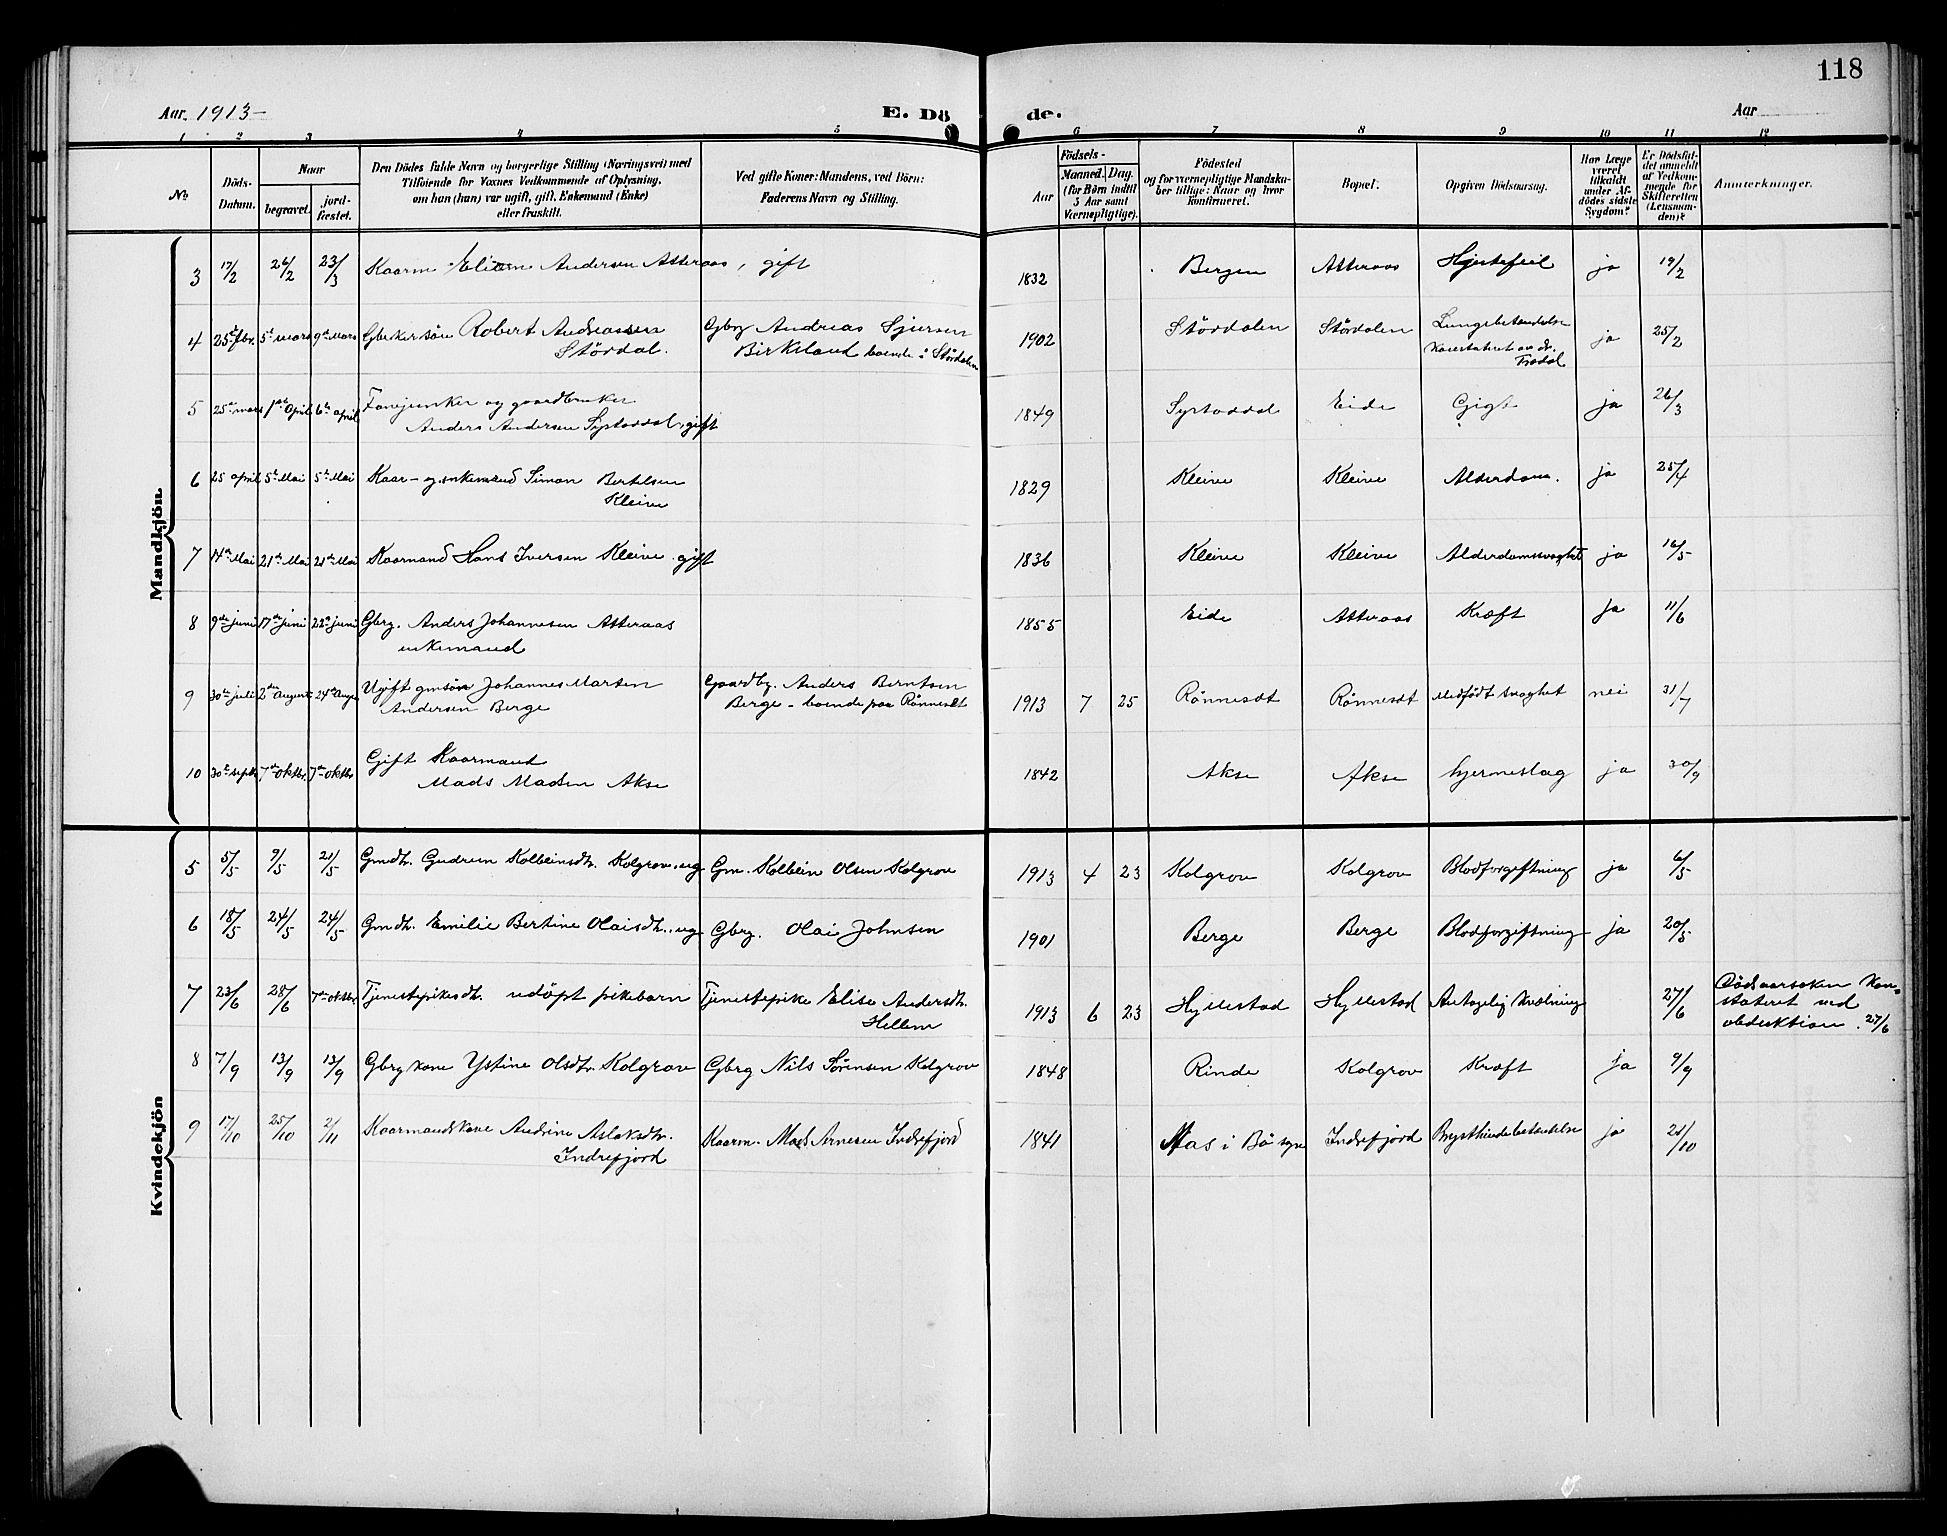 118
Aar. 1913- E. Dö de. Aar
1 2 3 4 5 6 7 8 9 10 11 12
No. Döds-Datum. Naar begravet. jord-fæstet. Den Dödes fulde Navn og borgerlige Stilling (Næringsvei) med Tilföiende for Voxnes Vedkommende af Oplysning, om hun (han) var ugift, gift, Enkemand (Enke) eller fraskilt. Ved gifte Koner: Mandens, ved Börn: Faderens Navn og Stilling. Födsels- Aar Maaned. Dag. (for Börn indtil 5 Aar samt Værnepligtige). Födested og for værnepligtige Mandska-ber tillige: Naar og hvor Konfirmeret. Bopæl. Opgiven Dödsaarsag. Har Læge været tilkaldt under Af-dödes sidste Sygdom? Er Dödsfal-det anmeldt af Vedkom-mende for Skifteretten (Lensman-den)? Anmærkninger.
Mandkjön.
3 17/2 26/2 23/3 Kaarm Elias Andersen Atteraas, gift 1832 Bergen Atteraas Hjertefeil ja 19/2
4 25de fbr. 5te mars 9de mars Gbrukersön Robert Andreassen Gbrg Andreas Sjursen 1902 Stördalen Stördalen Lungebetændelse ja 25/2
Stördal. Birkeland boende i Stördalen Konstateret av dr.
5 25de mars 1ste April 6te april Fanejunker og gaardbruker 1849 Systaddal Eide Gigt ja 26/3
Anders Andersen Systaddal, gift
6 25 april 5te Mai 5te Mai Kaar- og enkemand Simon Bertelsen 1829 Kleive Kleive Alderdom. ja 25/4
Kleive
7 14de Mai 21de Mai 21de Mai Kaarmand Hans Iversen Kleive. gift 1836 Kleive Kleive Alderdomssvaghet ja 16/5
8 9de juni 17de juni 22de juni Gbrg. Anders Johannesen Atteraas 1855 Eide Atteraas Kræft ja 11/6
enkemand
9 30te juli 2den August 24de Aug Ugift gmsön Johannes Marten Gaardbg. Anders Berntsen 1913 7 25 Rönneset Rönnesdt Medfödt svaghet nei 31/7
Andersen Berge Berge - boende paa Rönneset
10 30te septbr 7de oktbr. 7de oktbr Gift Kaarmand 1842 Akse Akse hjerneslag ja 30/9
Mads Madsen Akse
Kvindekjön
5 5/5 9/5 21/5 Gmdtr. Gudrun Kolbeinsdtr. Kolgrov, ug Gm. Kolbein Olsen Kolgrov 1913 4 23 Kolgrov Kolgrov Blodforgiftning ja 6/5
6 18/5 24/5 24/5 Gmdtr. Emilie Bertine Olaisdtr., ug Gbrg. Olai Johnsen 1901 Berge Berge Blodforgiftning ja 20/5
7 23/6 28/6 7de oktbr. Tjenestepikesdtr. udöpt pikebarn Tjenestepike Elise Andersdtr. 1913 6 23 Hyllestad Hyllestad Antagelig kvælning 27/6 Dödsaarsaken kon-
Hellem stateret ved
obduktion. 27/6
8 7/9 13/9 13/9 Gbrg kone Ystine Olsdtr. Kolgrov Gbrg Nils Sörensen Kolgrov 1848 Rinde Kolgrov Kræft ja 9/9
9 17/10 25/10 2/11 Kaarmandskone Andrine Aslaksdtr. Kaarm. Mads Arnesen Indrefjord 1841 Aas i Bö sogn Indrefjord Brysthindebetændelse ja 21/10
Indrefjord